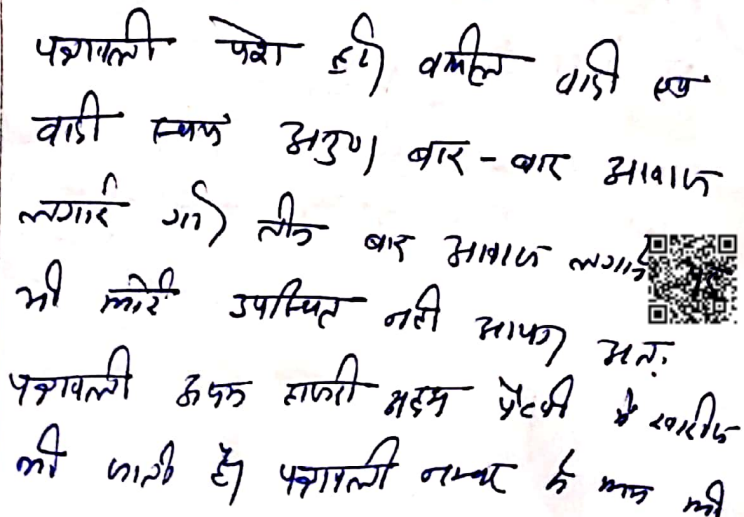 पत्रावली पेश हुई। वकील वादी एवं
वादी स्वयं अनु0। बार-बार आवाज
लगाई गई। तीन बार आवाज लगाने
भी कोई उपस्थित नही आया। अतः
पत्रावली अदम हाजरी अदम पैरवी में खारीज
की जाती है। पत्रावली नम्बर से कम की